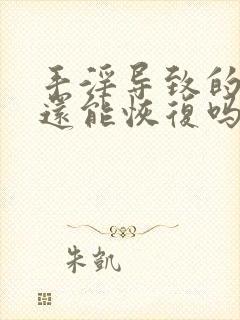 手淫导致的
還能恢復吗
朱凱